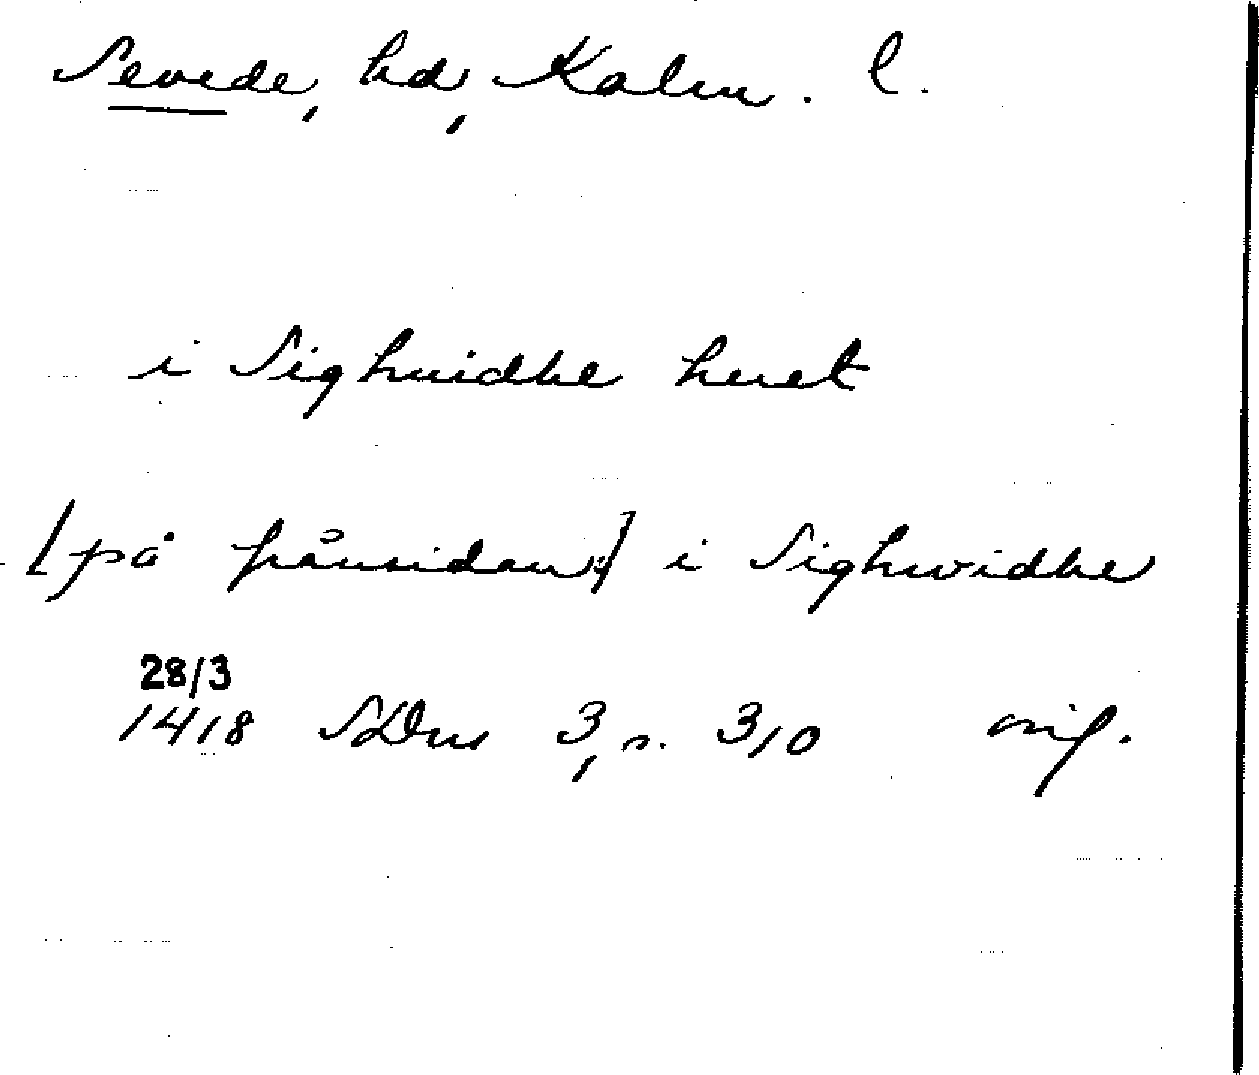 Sevede, hd, Kalm. l.
i Sighuidhe heret
[på frånsidan:] i Sighwidhe
28/3
1418 SDns 3, s. 310 orig.